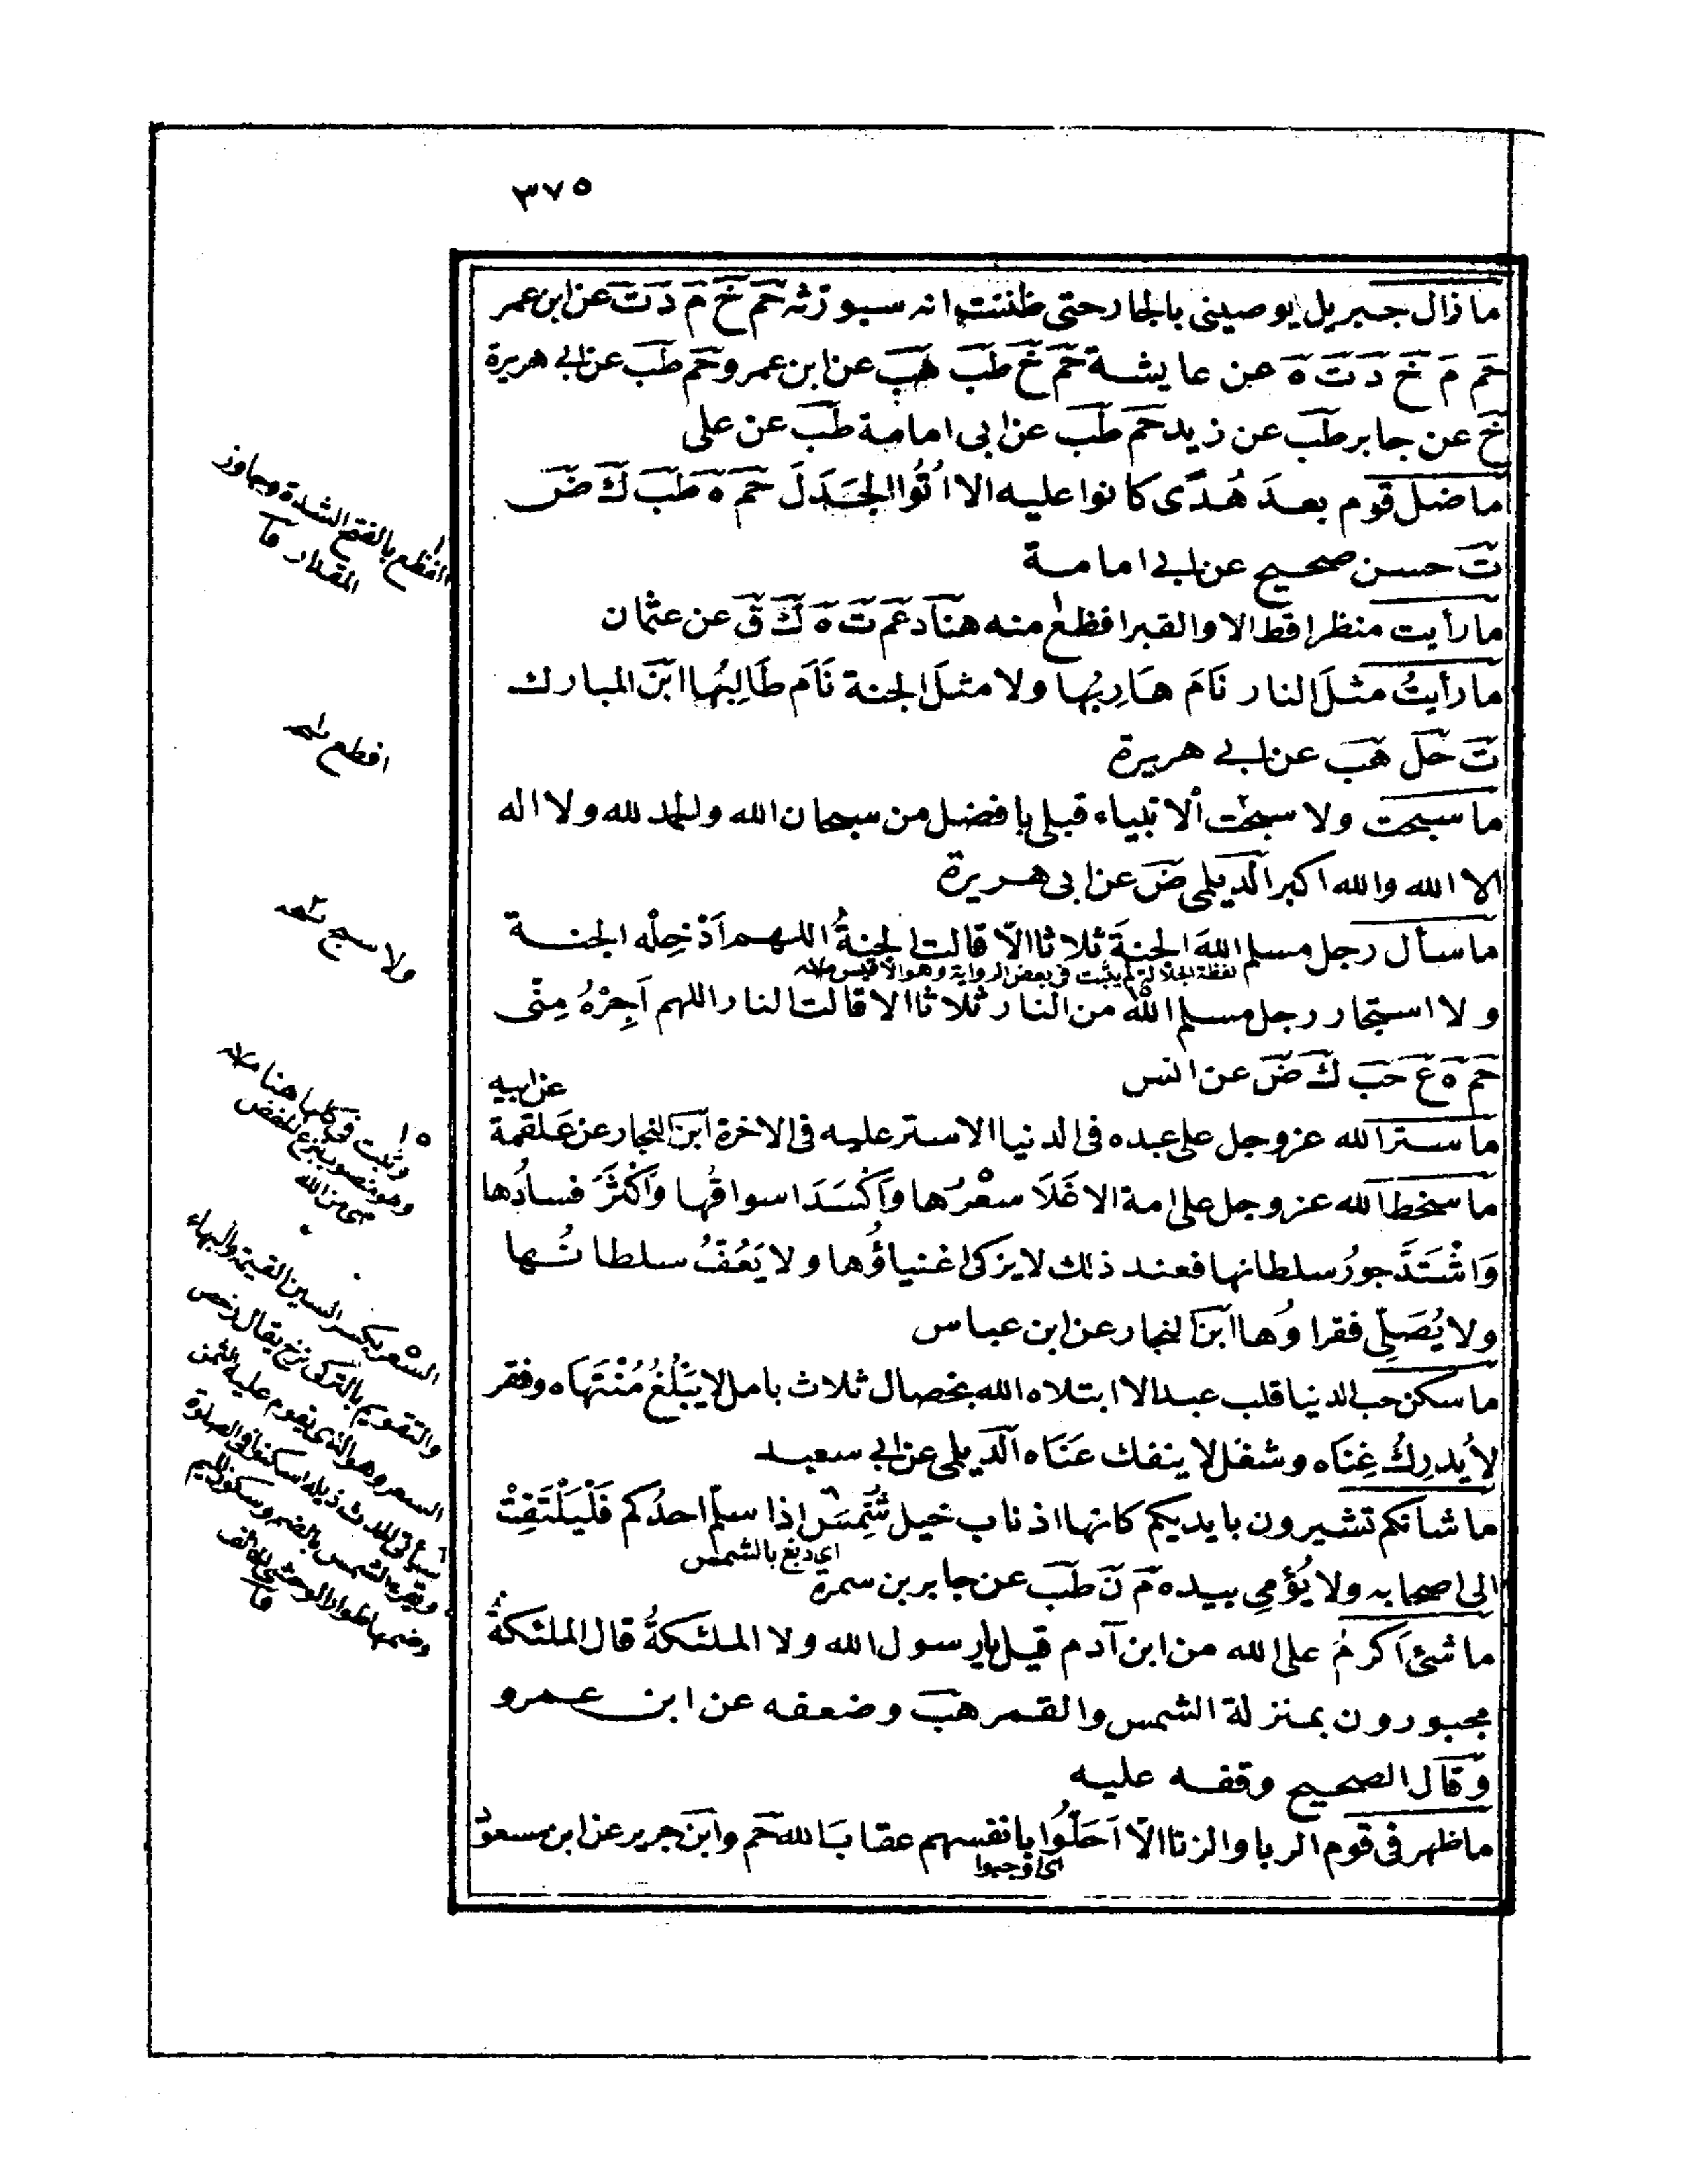 ٣٧٥
ما زال جبريل يوصينى بالجار حتى ظننت انه سيورثه حم خ م د ت عن ابن عمر
حم م خ د ت ه عن عايشة حم خ طب هب عن ابن عمرو حم طب عن ابى هريرة
خ عن جابر طب عن زيد حم طب عن ابى امامة طب عن على
ما ضل قوم بعدَ هُدًى كانوا عليه الا اُتُوا الجَدَلَ حم ه طب ك ض
ت حسن صحيح عن ابى امامة
ما رأيت منظرا قط الا والقبر افظع١ منه هناد عم ت ه ك ق عن عثمان
ما رأيتُ مثلَ النار نَامَ هَارِبُها ولا مثلَ الجنة نَامَ طَالِبُها ابن المبارك
ت حل هب عن ابى هريرة
ما سبحت ولا سبحت٢ ألانبياء قبلى بافضل من سبحان الله والحمد لله ولا اله
الا الله والله اكبر الديلمى ض عن ابى هريرة
ما سأل رجل مسلم اللهَ الجنةَ ثلاثا الّا قالت الجنةُ اللهم اَدْخِلْه الجنة
لفظة الجلالة لم يثبت فى بعض الرواية وهو الاقيس
ولا استجار رجل مسلم الله من النار ثلاثا الا قالت النار اللهم اَجِرْهُ مِنّى
حم ه ع حب ك ض عن انس
عن ابيه
ما ستر الله عز وجل على عبده فى الدنيا الا ستر عليه فى الاخرة ابن النجار عن علقمة
ما سخط الله عز وجل على امة الا غَلَا سعْرُها وَاَكْسَدَ اسواقُها وَاَكْثَرَ فسادُها
وَاشْتَدَّ جورُ سلطانها فعند ذلك لا يزكى اغنياؤُها ولا يَعُفُّ سلطانُها
ولا يُصَلّى فقراؤُها ابن النجار عن ابن عباس
ما سكن حب الدنيا قلب عبد الا ابتلاه الله بخصال ثلاث بامل لا يَبْلُغُ مُنْتَهَاه وفقر
لا يُدركُ غِنَاه وشغل لا ينفك عَنَاه الديلمى عن ابى سعيد
ما شأنكم تشيرون بايديكم كانها اذناب خيل شُمس اذا سلّم احدُكم فَلْيَلْتَفِتْ
اى دبغ بالشمس
الى اصحابه ولا يُؤمِى بيده م ن طب عن جابر بن سمرة
ما شئ اَكرمُ على الله من ابن آدم قيل يا رسول الله ولا الملئكةُ قال الملئكةُ
مجبورون بمنزلة الشمس والقمر هب وضعفه عن ابن عمرو
وقال الصحيح وقفه عليه
ما ظهر فى قوم الربا والزنا الّا اَحَلّوُا بانفسهم عقابَ الله حم وابن جرير عن ابن مسعود
اى اوجبوا
افظع بالفتح الشدة وجاوز
المقدار
افطع نسخه
ولا سبح نسخه
وثبت فى كلها هنا
وهو منصوب بنزع الخفض
اى من الله
السعر بكسر السين القيمة والبهاء
والتقويم بالتركى نرخ يقال رخص
السعر وهو الذى يقوم عليه الثمن
سيأتى للحدث ذيله اسكنوا فى الصلوة